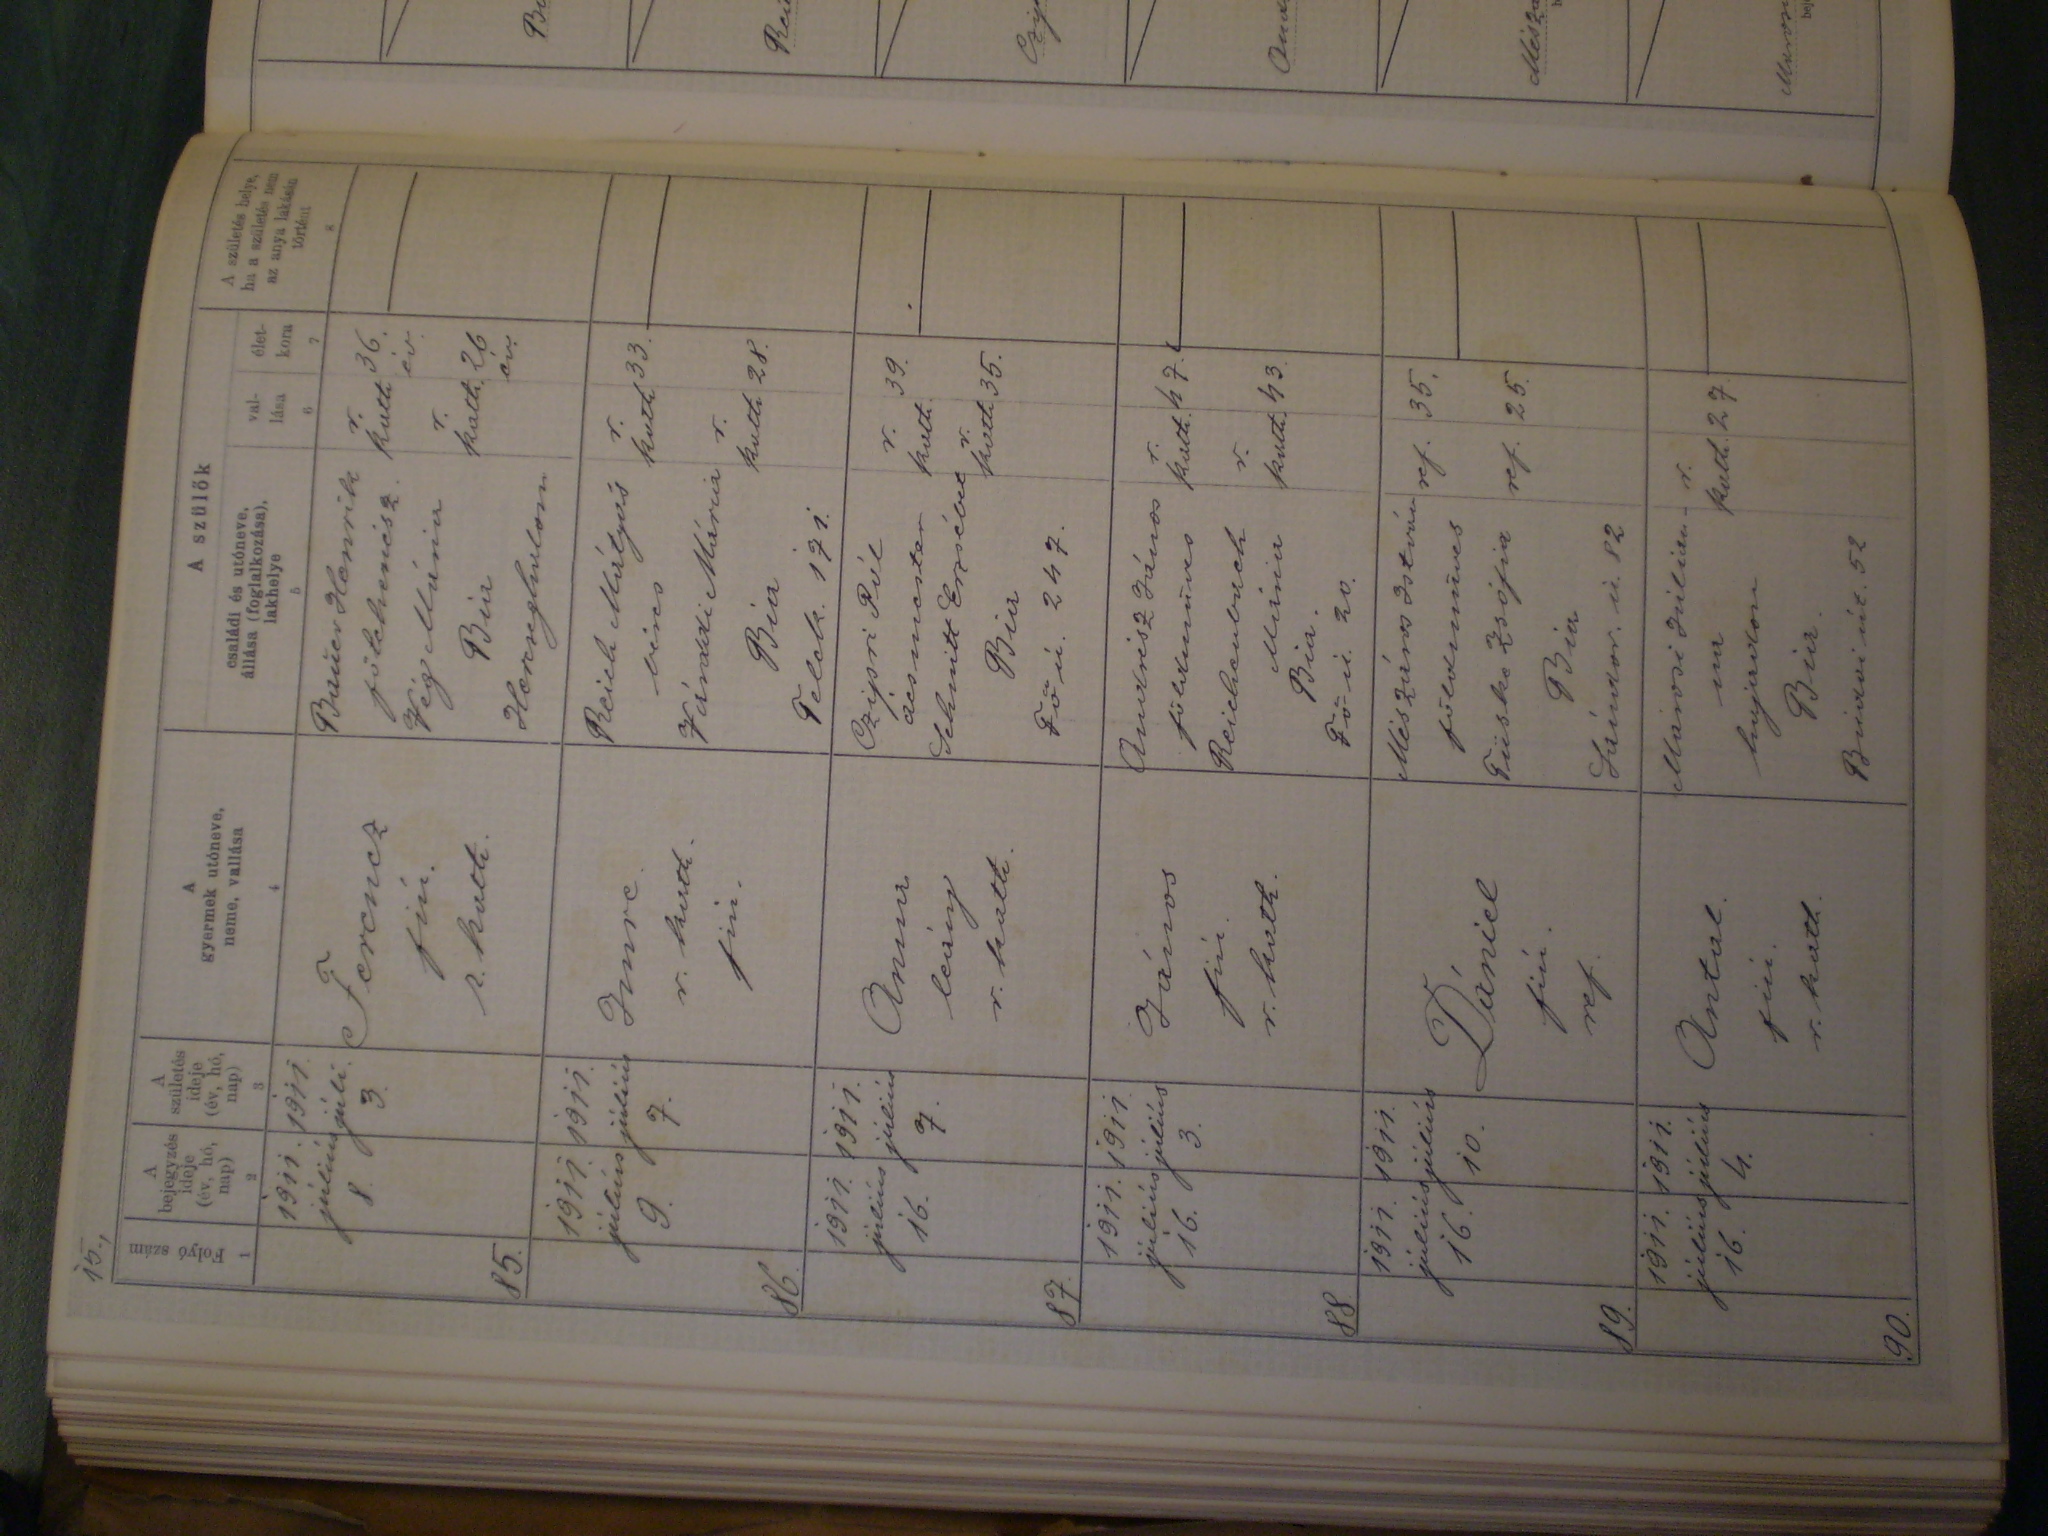 15.,
Folyó szám
1
A
bejegyzés
ideje
(év, hó,
nap)
2
A
születés
ideje
(év, hó,
nap)
3
A
gyermek utóneve,
neme, vallása
4
A szülők
családi és utóneve,
állása (foglalkozása),
lakhelye
5
val-
lása
6
élet-
kora
7
A születés helye,
ha a születés nem
az anya lakásán
történt
8
85.
1911.
július
8.
1911.
júli.
3.
Ferencz
fiú.
r. kath.
Bauer Henrik
Vég Mária
Bia
r.
kath.
36.
év.
r.
kath.
26
év.
86.
1911.
július
9.
1911.
július
7.
Imre.
r. kath.
fiú.
Reich Mátyás
Mária
Bia
Telek. 171.
r.
kath.
33.
r.
kath.
28.
87.
1911.
július
16.
1911.
július
7.
Anna
leány
r. kath.
Czipri Pál
ácsmester
Schmitt Erzsébet
Bia
Fő u. 247.
r.
kath.
39.
r.
kath.
35.
88.
1911.
július
16.
1911.
július
3.
János
fiú.
r. kath.
Andrisz János
földműves
Reichenbach
Mária
Bia.
Fő u. 20.
r.
kath.
47.
r.
kath.
43.
89.
1911.
július
16.
1911.
július
10.
Dániel
fiú.
ref.
Mészáros István
földműves
Tüske Zsófia
Bia
Sándor. u. 82
ref.
35.
ref.
25.
90.
1911.
július
16.
1911.
július
4.
Antal.
fiú.
r. kath.
Marosi Julian-
na
hajadon
Bia.
út. 52
r.
kath.
27.